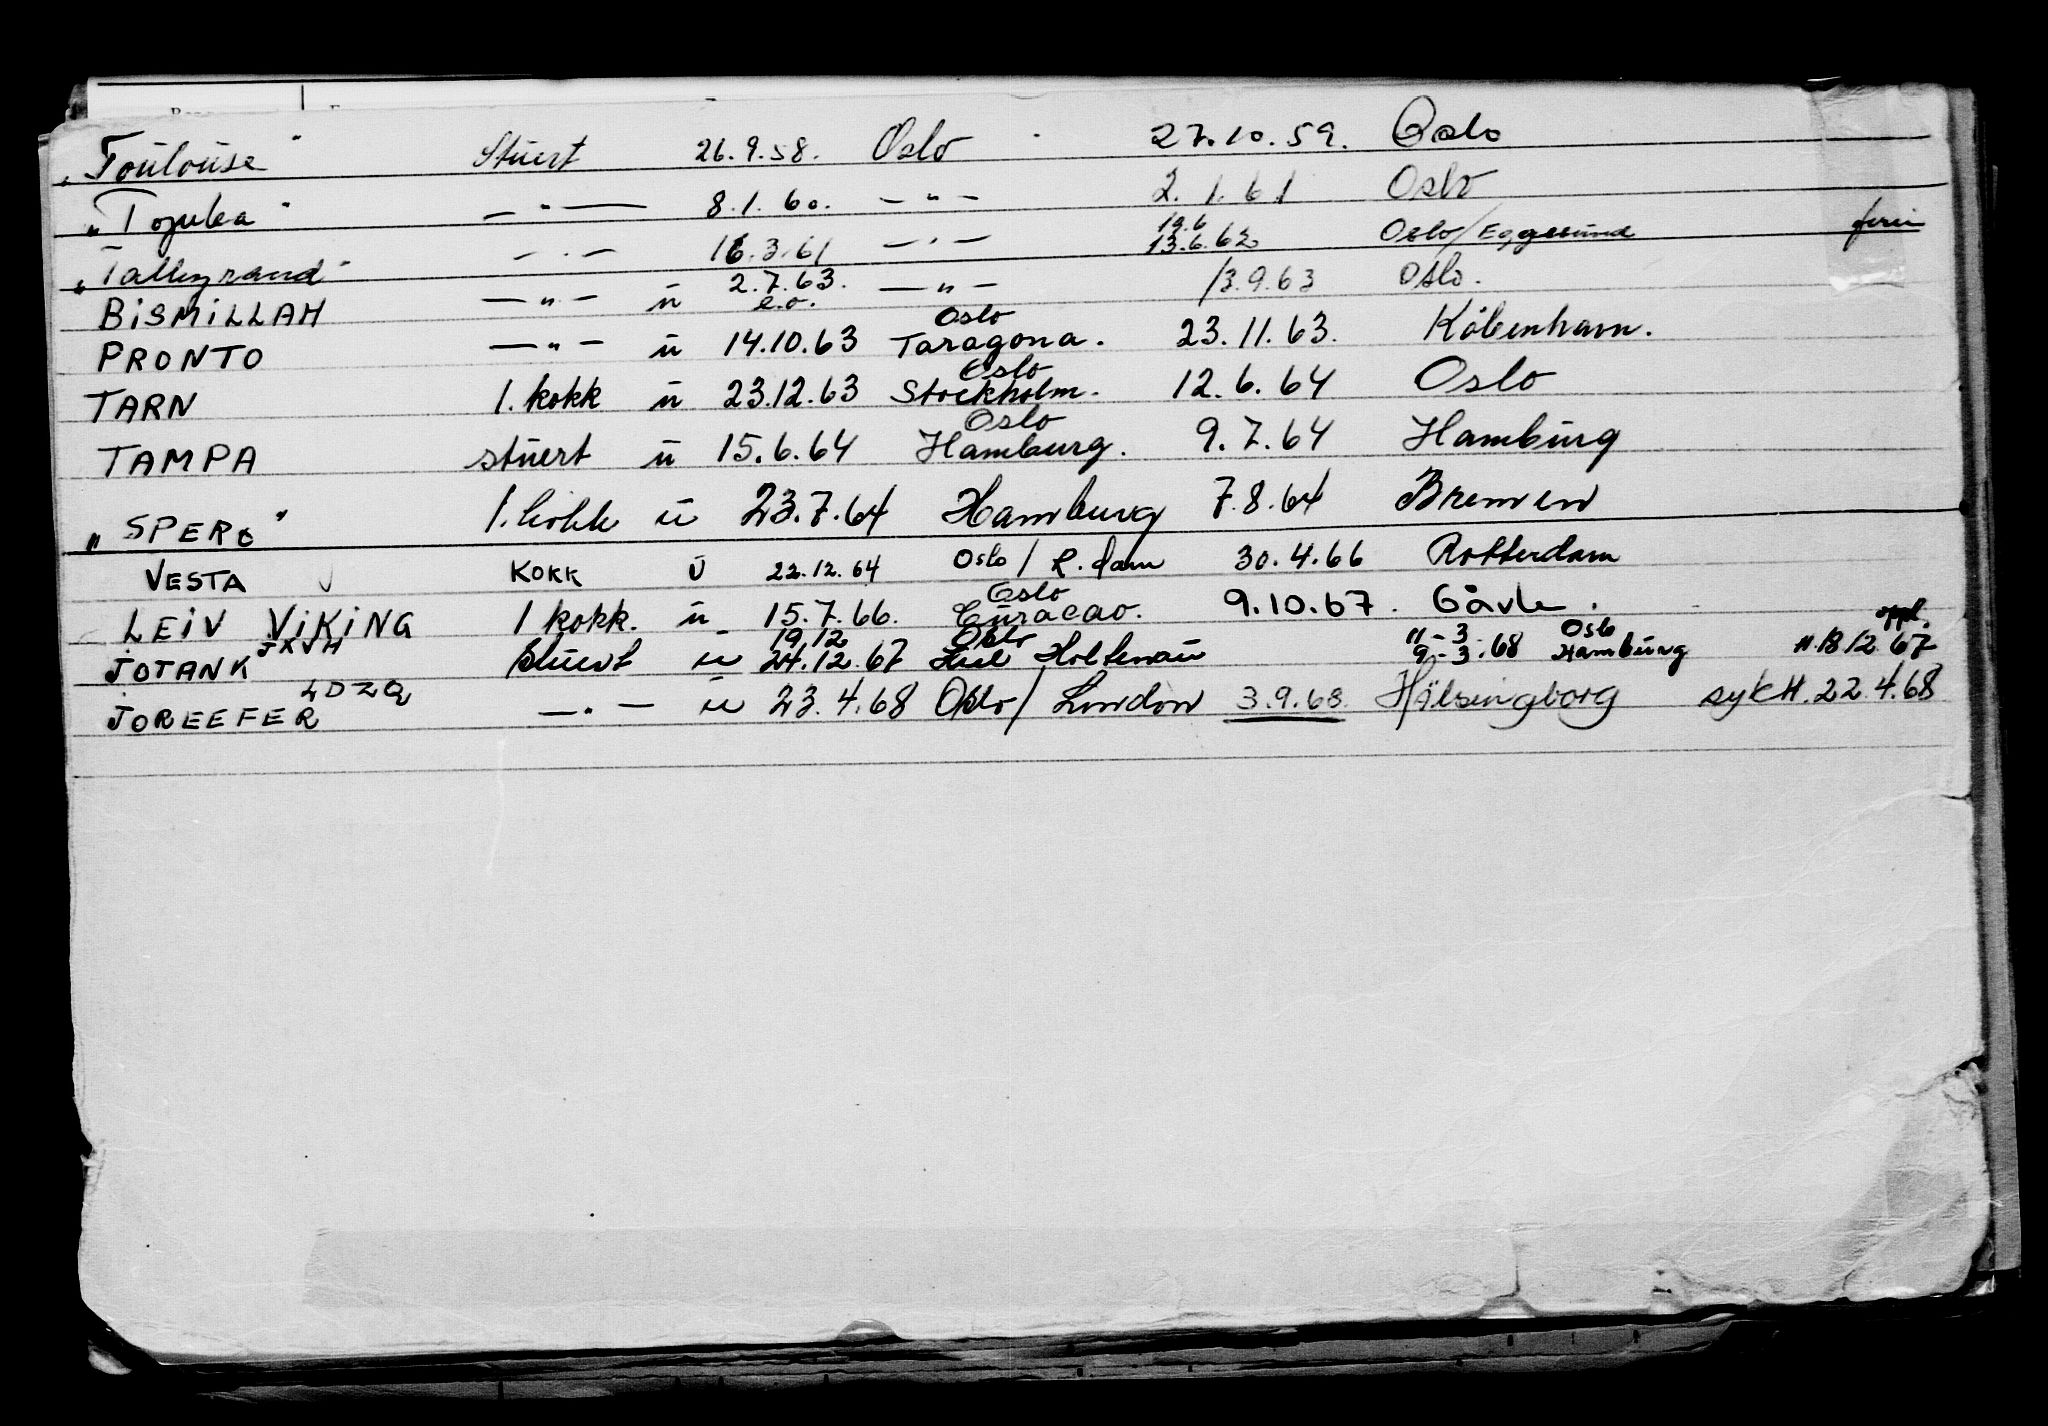 "Toulouse" Stuert 26.9.58. Oslo 27.10.59. Oslo
"Topeka" — " — 8.1.60. — " — 2.1.61 Oslo
19.6
"Talleyrand" — " — 16.3.61 — " — 13.6.62 Oslo/Eggesund ferie
BISMILLAH — " — ü 2.7.63. — " — 13.9.63 Oslo.
e.o. Oslo
PRONTO — " — ü 14.10.63 Taragona. 23.11.63. Köbenhavn.
Oslo
TARN 1. kokk ü 23.12.63 Stockholm. 12.6.64 Oslo
Oslo
TAMPA stuert ü 15.6.64 Hamburg. 9.7.64 Hamburg
"SPERO" 1. kokk ü 23.7.64 Hamburg 7.8.64 Bremen
VESTA KOKK Ü 22.12.64 Oslo / R.dam 30.4.66 Rotterdam
Oslo
LEIV VIKING 1 kokk. ü 15.7.66. Curacao. 9.10.67. Gävle.
JXJH 19.12 Oslo 11-3 Oslo oppl.
JOTANK Stuert ü 24.12.67 Kiel Holtenau 9-3.68 Hamburg 18/12.67
LDZQ
JOREEFER — " — ü 23.4.68 Oslo / London 3.9.68. Hälsingborg sykM.22.4.68